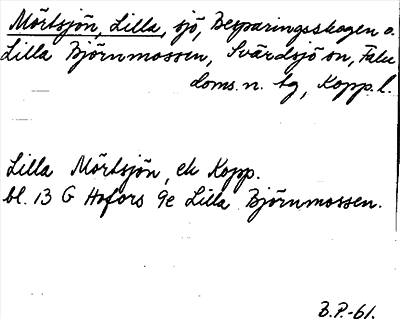 Mörtsjön, Lilla, sjö, Besparingsskogen o.
Lilla Björnmossen, Svärdsjö sn, Falu
doms. n. tg, Kopp. l.
Lilla Mörtsjön, ek Kopp.
bl. 13 G Hofors 9e Lilla Björnmossen.
B.P.-61.